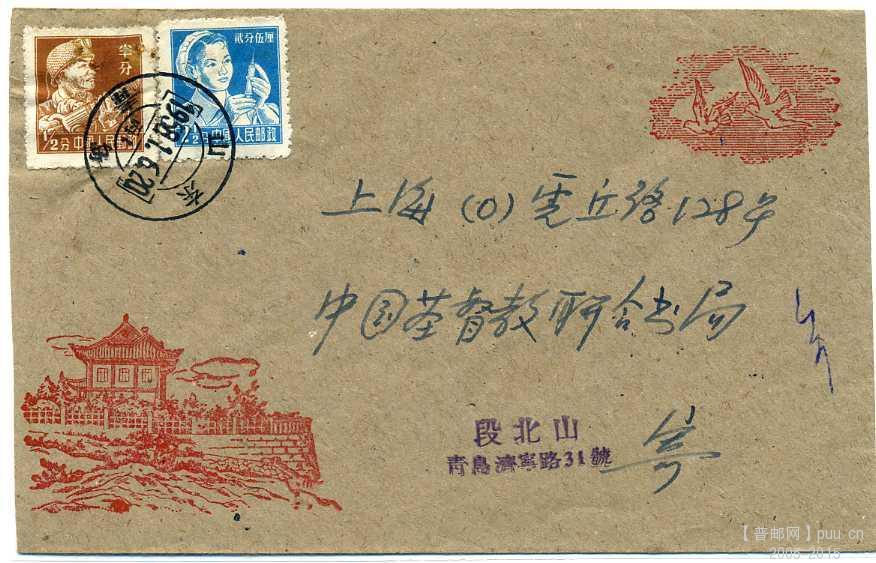 半分
1/2分 中国人民邮政
贰分伍厘
2 1/2分 中国人民邮政
山东
1958.1.6.20
上海(0)虎丘路128号
中国基督教联合书局
段北山
青島濟寧路31號
寄
【普邮网】puu.cn
2005-2015